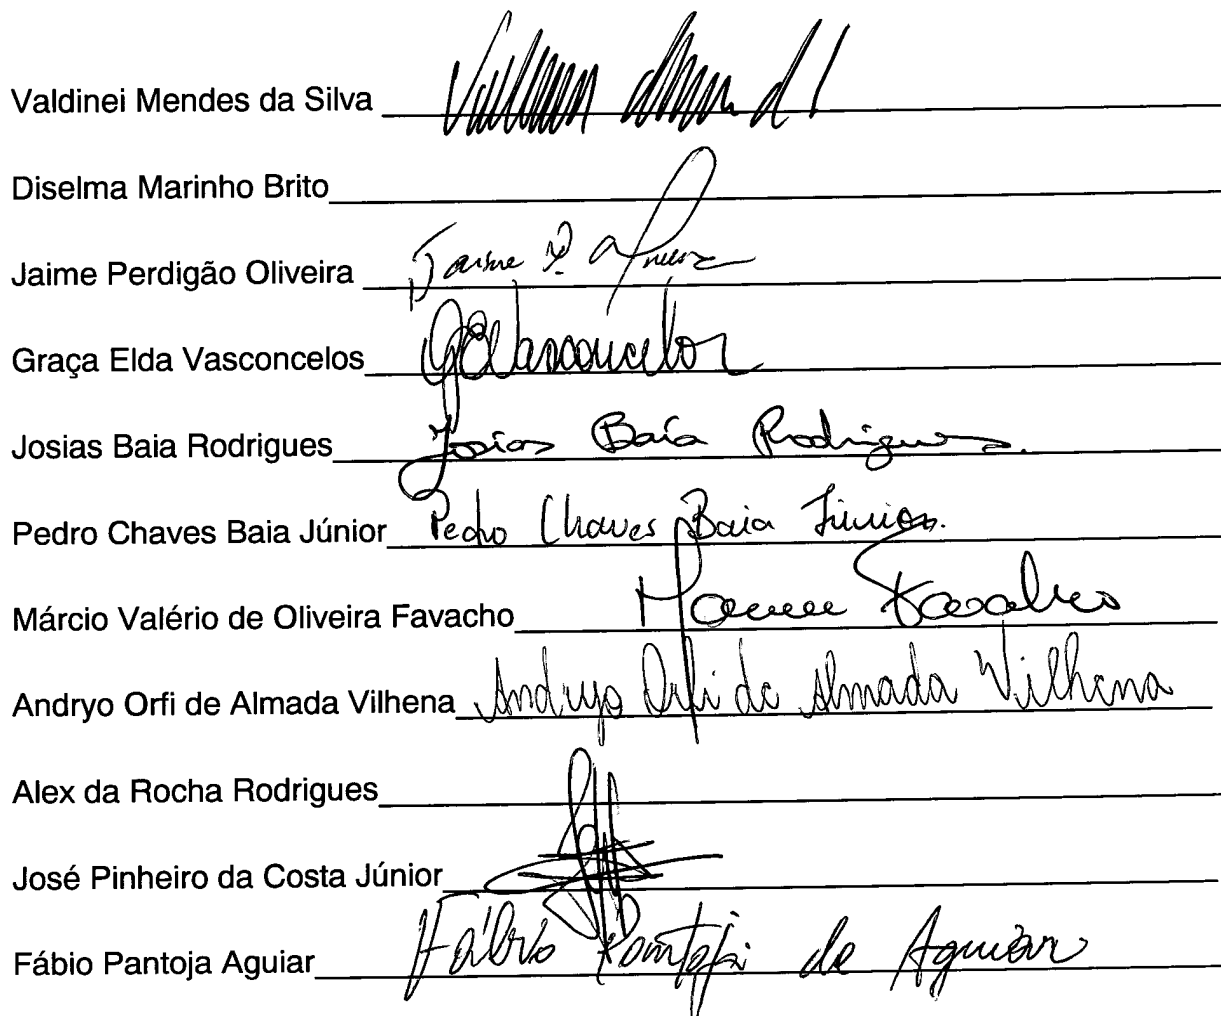 Valdinei Mendes da Silva
Diselma Marinho Brito
Jaime Perdigão Oliveira Jaime P.
Graça Elda Vasconcelos GEVasconcelos
Josias Baia Rodrigues Josias Baía Rodrigues.
Pedro Chaves Baia Júnior Pedro Chaves Baia Júnior.
Márcio Valério de Oliveira Favacho Favacho
Andryo Orfi de Almada Vilhena Andryo Orfi de Almada Vilhena
Alex da Rocha Rodrigues
José Pinheiro da Costa Júnior
Fábio Pantoja Aguiar Fábio Pantoja de Aguiar